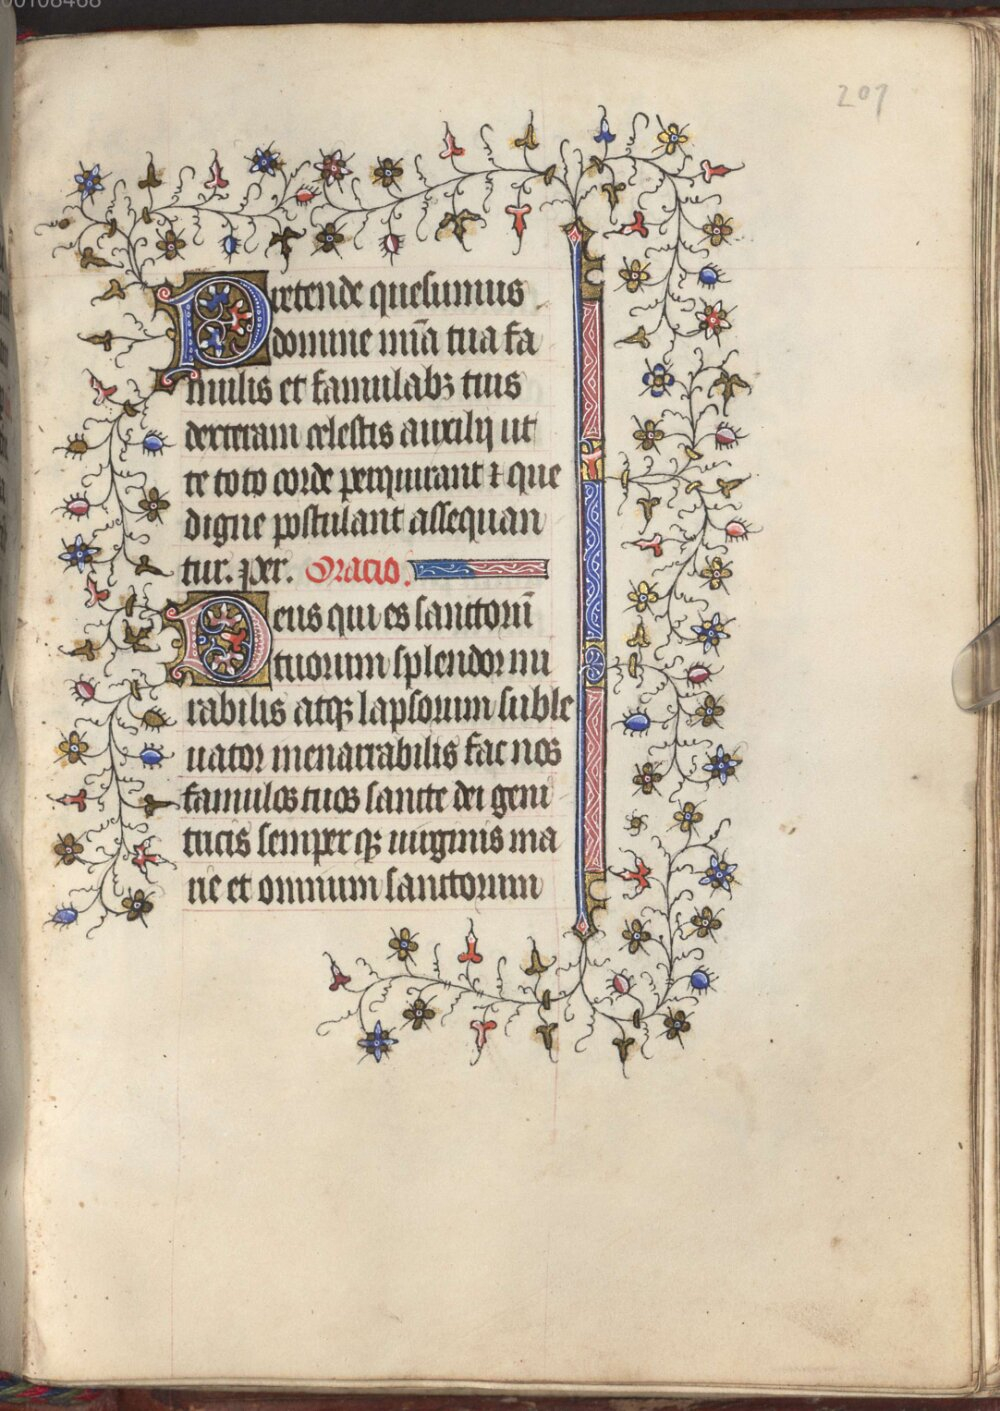 00108468
207
Pretende quesumus
domine mīa tua fa
mulis et famulabꝫ tuis
dexteram celestis auxilij ut
te toto corde perquirant ⁊ que
digne postulant assequan
tur. per. Oracio.
Deus qui es sanctorū
tuorum splendor mi
rabilis atqꝫ lapsorum suble
uator inenarrabilis fac nos
famulos tuos sancte dei geni
tricis semperqꝫ uirginis ma
rie et omnium sanctorum